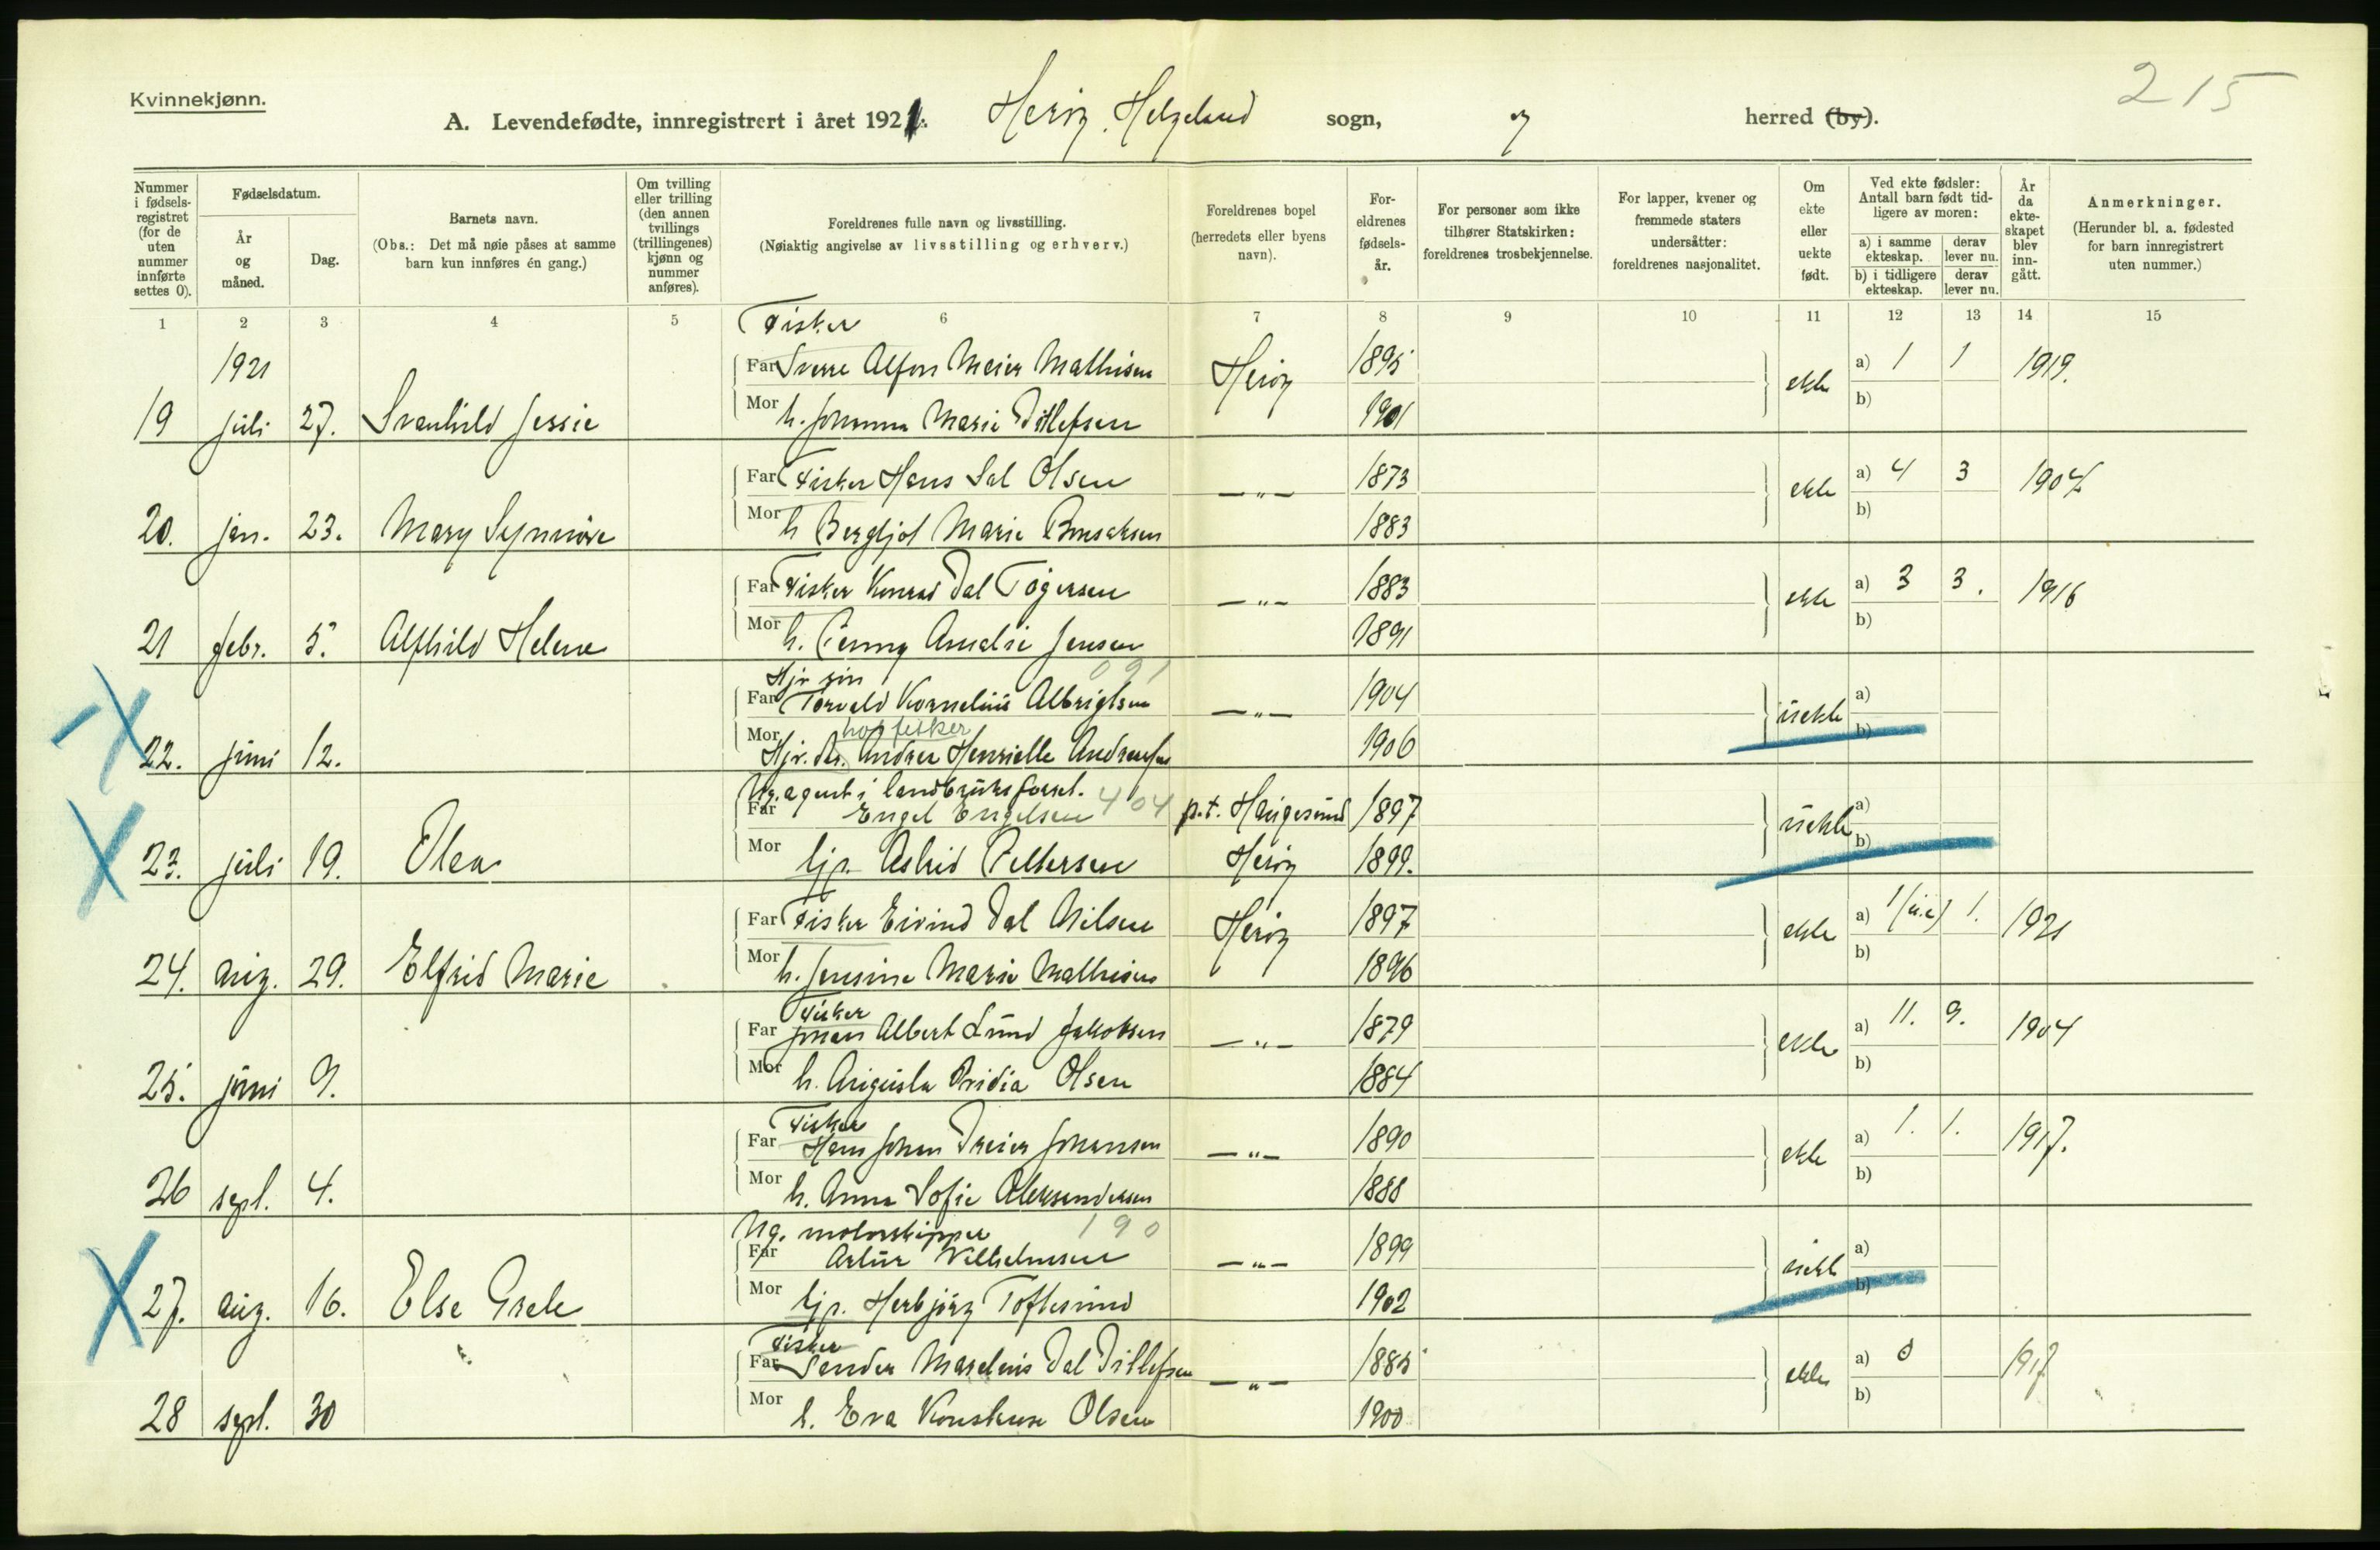 Kvinnekjønn.
215
A. Levendefødte, innregistrert i året 1921. Herøy, Helgeland sogn, " herred (by).
Nummer i fødselsregistret (for de uten nummer innførte settes 0).
Fødselsdatum.
År og måned.
Dag.
Barnets navn.
(Obs.: Det må nøie påses at samme barn kun innføres én gang.)
Om tvilling eller trilling (den annen tvillings (trillingenes) kjønn og nummer anføres).
Foreldrenes fulle navn og livsstilling.
(Nøiaktig angivelse av livsstilling og erhverv.)
Foreldrenes bopel (herredets eller byens navn).
Foreldrenes fødselsår.
For personer som ikke tilhører Statskirken: foreldrenes trosbekjennelse.
For lapper, kvener og fremmede staters undersåtter: foreldrenes nasjonalitet.
Om ekte eller uekte født.
Ved ekte fødsler: Antall barn født tidligere av moren:
a) i samme ekteskap. derav lever nu.
b) i tidligere ekteskap. derav lever nu.
År da ekteskapet blev inngått.
Anmerkninger.
(Herunder bl. a. fødested for barn innregistrert uten nummer.)
1 2 3 4 5 6 7 8 9 10 11 12 13 14 15
Fisker
1921 Far Sverre Alfon Meier Mathisen Herøy 1895 ekte a) 1 1 1919.
19 juli 27. Svanhild Jessie Mor h. Johanna Marie Ditlefsen 1901 b)
Far Fisker Hans Dal Olsen —"— 1873 ekte a) 4 3 1907
20. jan. 23. Mary Synnöve Mor h Bergljot Marie 1883 b)
Far Fisker Konrad Dal Togersen —"— 1883 ekte a) 3 3. 1916
21 febr. 5. Alfhild Helene Mor h. Penny Amalie Jensen 1891 b)
091
Far Torvald Kornelius Albrigtsen —"— 1904 uekte a)
22. juni 12. Mor Hjv. dtr. Andrea Henriette 1906 b)
Ug. agent i landbruksforret. 404
Far Engel Engelsen p.t. Haugesund 1897 uekte a)
23. juli 19. Olea Mor tjp. Astrid Pettersen Herøy 1899. b)
Far Fisker Eivind Dal Nilsen Herøy 1897 ekte a) 1 (u.e) 1. 1921
24. aug. 29. Elfrid Marie Mor h. Jensine Marie Mathisen 1896 b)
Fisker
Far Johan Albert Lund Jakobsen —"— 1879 ekte a) 11. 9. 1904
25. juni 9. Mor h. Augusta Olsen 1884 b)
Fisker
Far Hans Johan Dreier Johansen —"— 1890 ekte a) 1. 1. 1917.
26 sept. 4. Mor h. Anna Sofie Aleksandersen 1888 b)
Ug. motorskipper 190
Far Artur Vilhelmsen —"— 1899 uekte a)
27. aug. 16. Else Grete Mor tjp. Herbjörg Toftesund 1902 b)
Fisker
Far Sander Marelius Dal Ditlefsen —"— 1885 ekte a) 0 1917
28 sept. 30 Mor h. Eva Konstanse Olsen 1900 b)